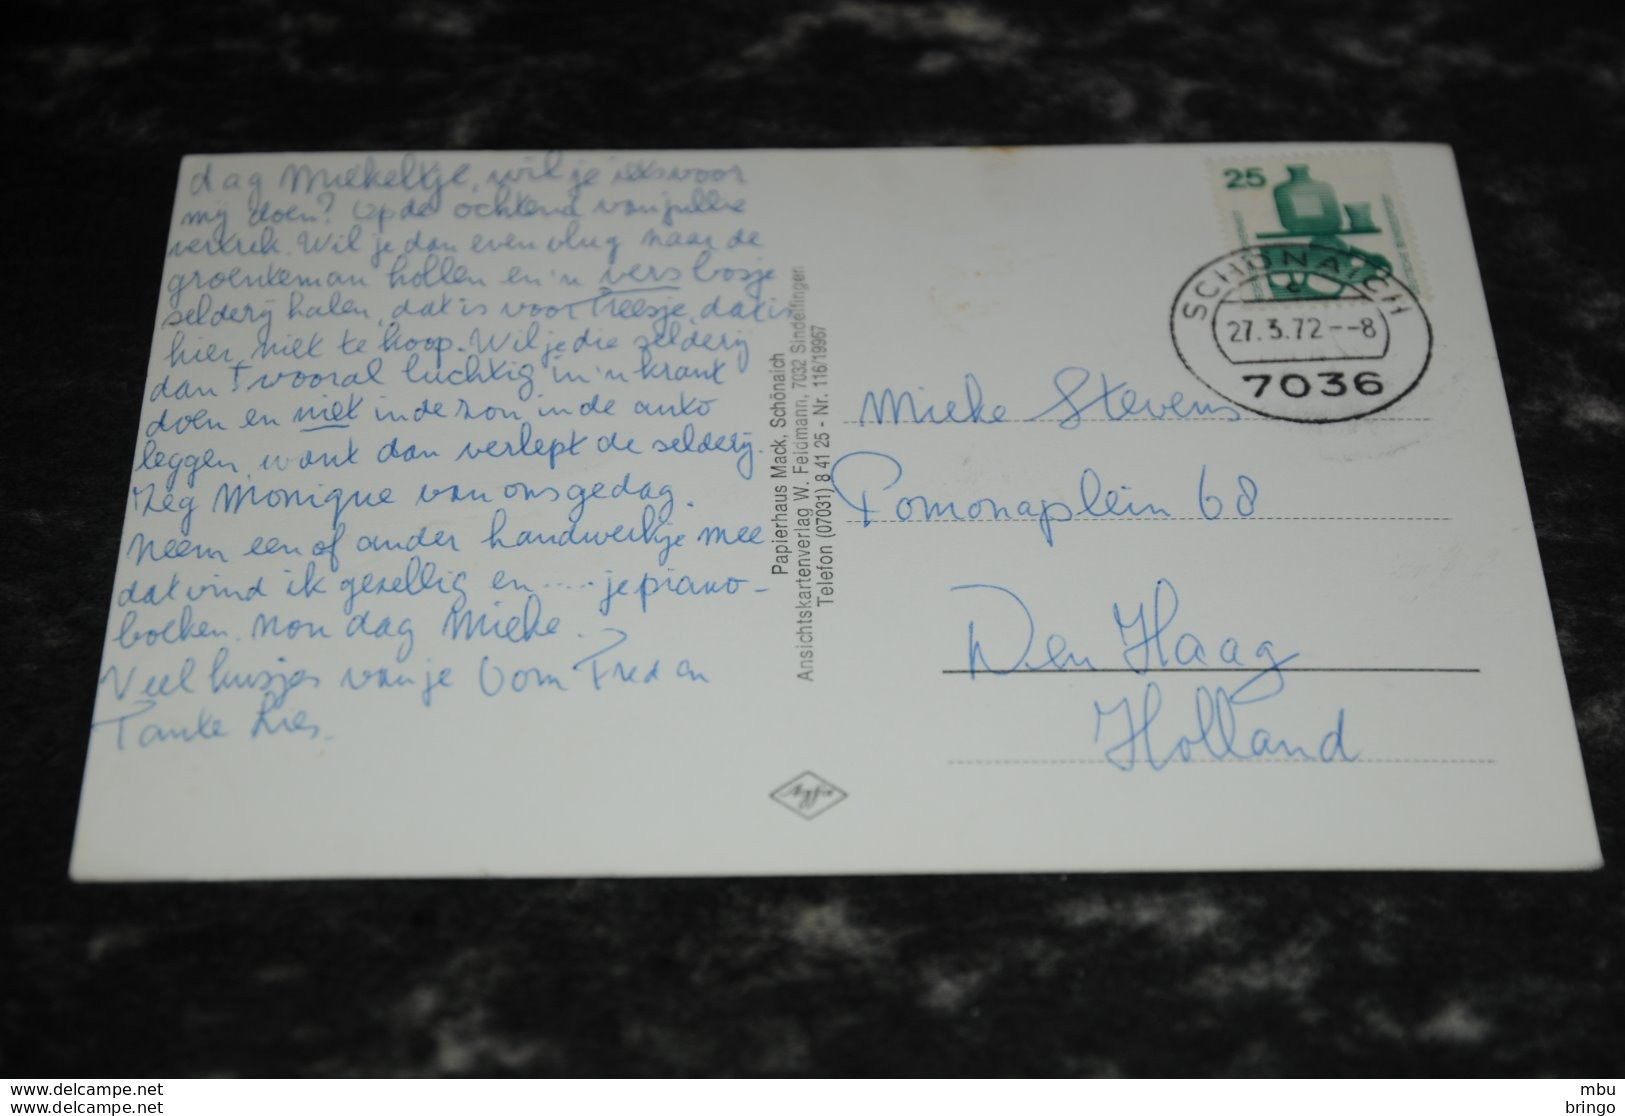 dag Miekeltje, wil je iets voor
mij doen? Op de ochtend van jullie
vertrek. Wil je dan even vlug naar de
groenteman hollen en 'n vers bosje
selderij halen, dat is voor Treesje, dat is
hier niet te koop. Wil je die selderij
dan vooral luchtig in 'n krant
doen en niet in de zon in de auto
leggen, want dan verlept de selderij.
Zeg Monique van ons gedag.
Neem een of ander handwerkje mee
dat vind ik gezellig en ..... je piano-
boeken. Nou dag Mieke.
Veel kusjes van je Oom Fred en
Tante Lies.
Papierhaus Mack, Schönaich
Ansichtskartenverlag W. Feldmann, 7032 Sindelfingen
Telefon (07031) 8 41 25 - Nr. 116/19967
25
SCHÖNAICH
27.3.72--8
7036
Mieke Stevens
Pomonaplein 68
Den Haag
Holland
delcampe.net
delcampe.net
mbu
bringo